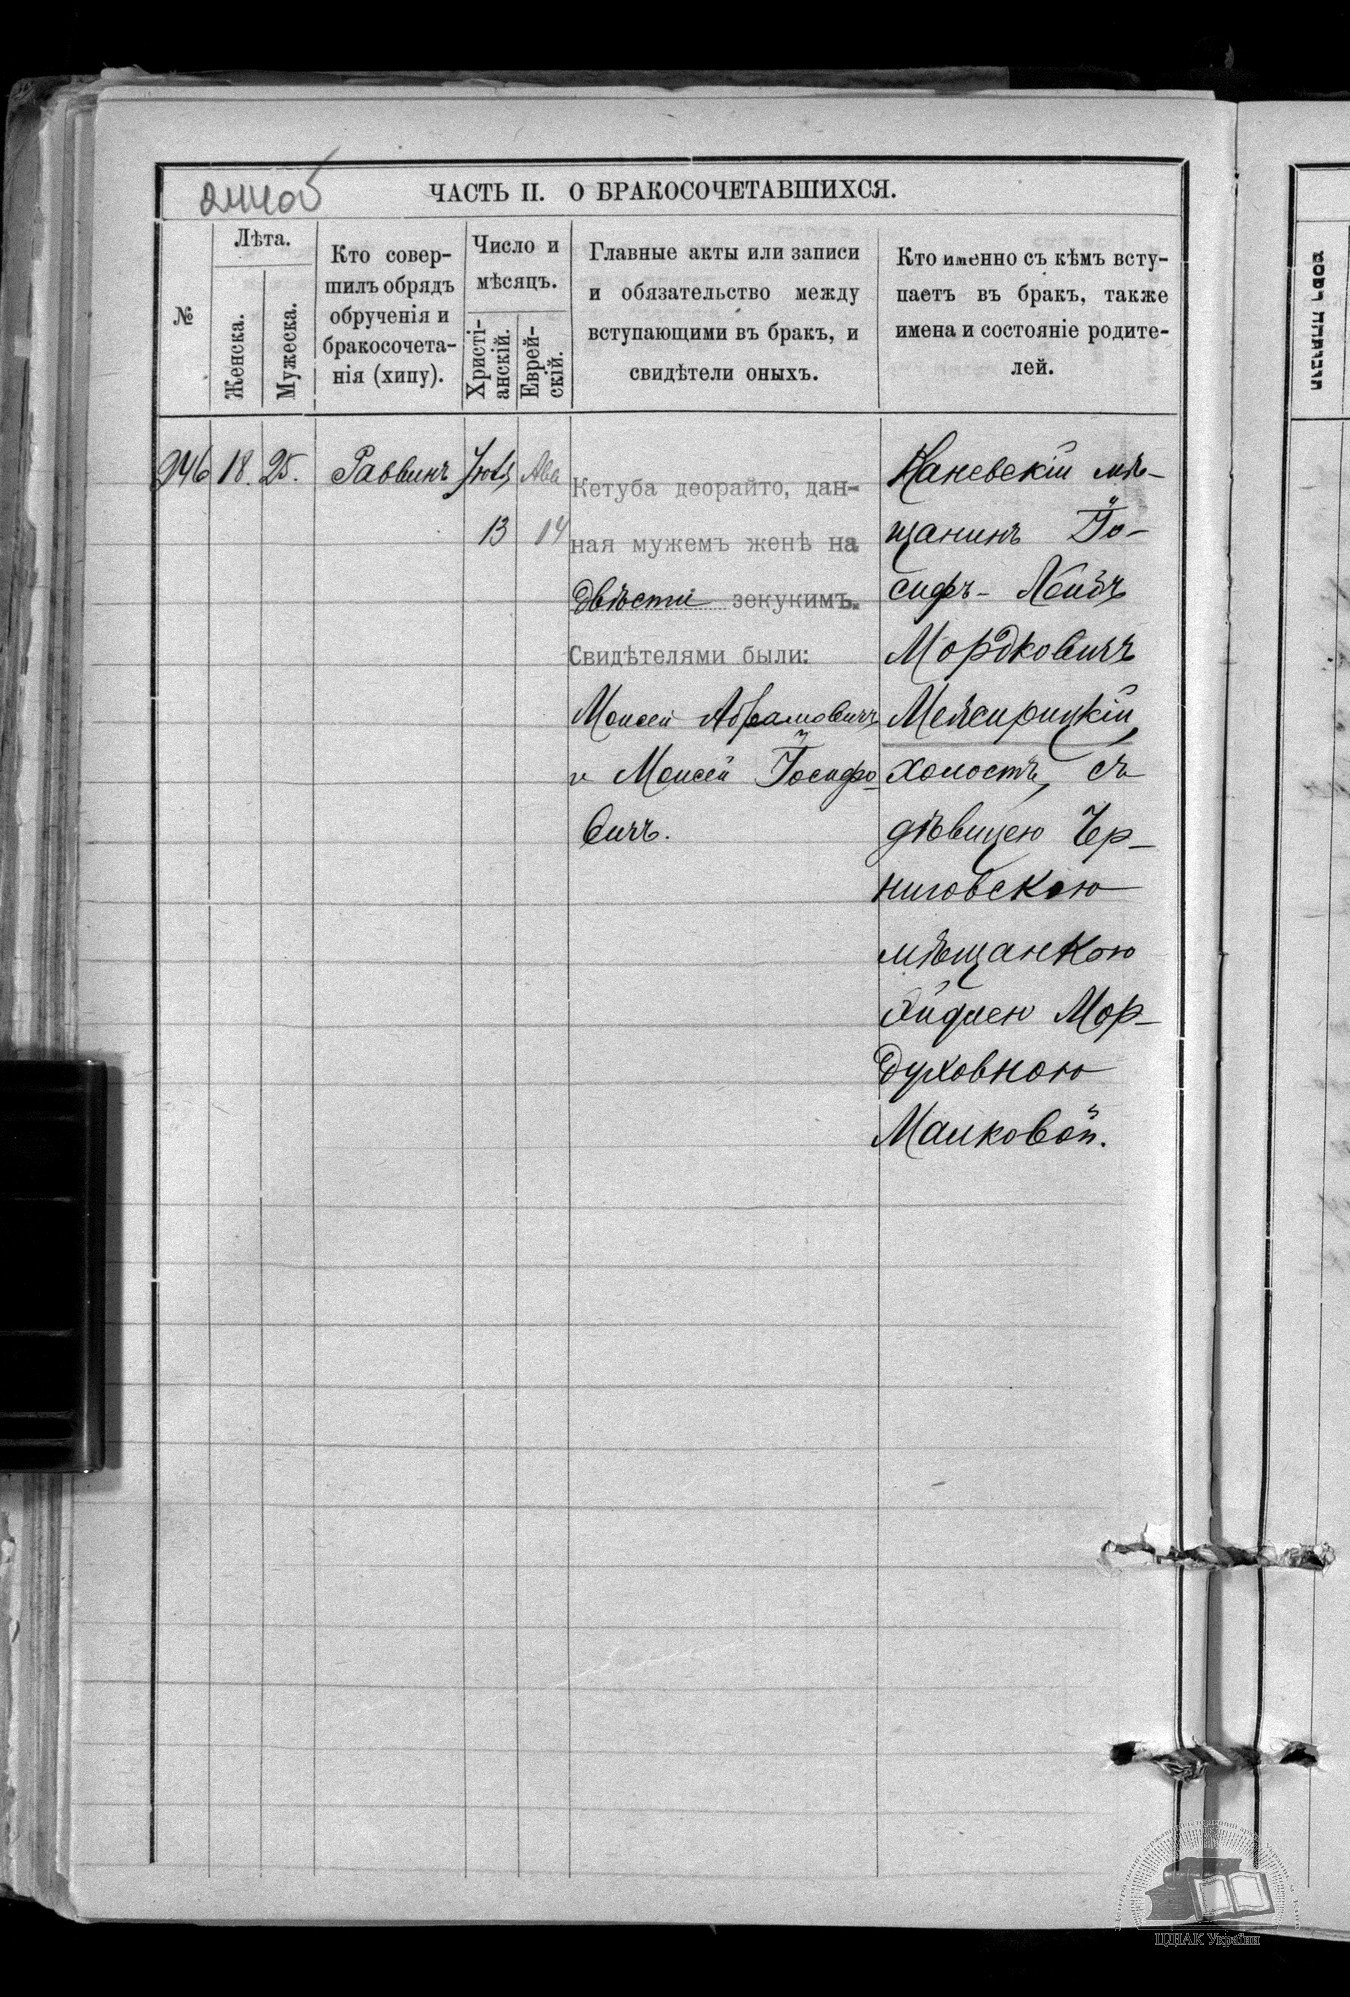 ЧАСТЬ II. О БРАКОСОЧЕТАВШИХСЯ.
№
Лѣта.
Женска.
Мужеска.
Кто совер-
шилъ обрядъ
обрученія и
бракосочета-
нія (хипу).
Число и
мѣсяцъ.
Христі-
анскій.
Еврей-
скій.
Главные акты или записи
и обязательство между
вступающими въ бракъ, и
свидѣтели оныхъ.
Кто именно съ кѣмъ всту-
паетъ въ бракъ, также
имена и состояніе родите-
лей.
246
18.
25.
Раввинъ
Іюль
13
Ава
14
Кетуба деорайто, дан-
ная мужемъ женѣ на
двѣсти зекукимъ.
Свидѣтелями были:
Моисей Абрамовичъ
и Моисей Іосифо-
вичъ.
Каневскій мѣ-
щанинъ Іо-
сифъ-Лейбъ
Мордковичъ
Межирицкій,
холостъ, съ
дѣвицею Чер-
ниговскою
мѣщанкою
Мор-
духовною
Малковой.
ЦДІАК України